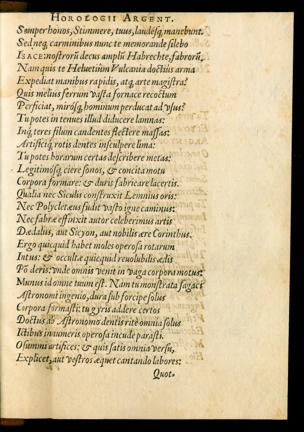 HOROLOGII ARGENT.
Semper honos, Stimmere, tuus, laudesq́; manebunt.
Sed neq; carminibus nunc te memorande silebo
ISACE nostrorũ decus amplũ Habrechte, fabrorũ,
Nam quis te Heluetiũm Vulcania doctius arma
Expediat manibus rapidis, atq; arte magistra?
Quis melius ferrum vasta fornace recoctum
Perficiat, mirósq; hominum perducat ad vsus?
Tu potes in tenues illud diducere lamnas:
Inq; teres filum candentes flectere massas:
Artificiq; rotis dentes insculpere lima:
Tu potes horarum certas describere metas:
Legitimósq; ciere sonos, & concita motu
Corpora formare: & duris fabricare lacertis.
Qualia nec Siculis construxit Lemnius oris:
Nec Polycletæus fudit vasto igne caminus:
Nec fabræ effinxit autor celeberimus artis
Dædalus, aut Sicyon, aut nobilis ære Corinthus.
Ergo quicquid habet moles operosa rotarum
Intus: & occultæ quicquid reuolubilis ædis
Põderis: vnde omnis venit in vaga corpora motus:
Munus id omne tuum est. Nam tu monstrata sagaci
Astronomi ingenio, dura sub forcipe solus
Corpora formasti: tu gyris addere certos
Doctus ab Astronomo dentis ritè omnia solus
Ictibus innumeris operosa incude parasti.
O summi artifices: & quis satis omnia versu,
Explicet, aut vestros æquet cantando labores:
Quot-